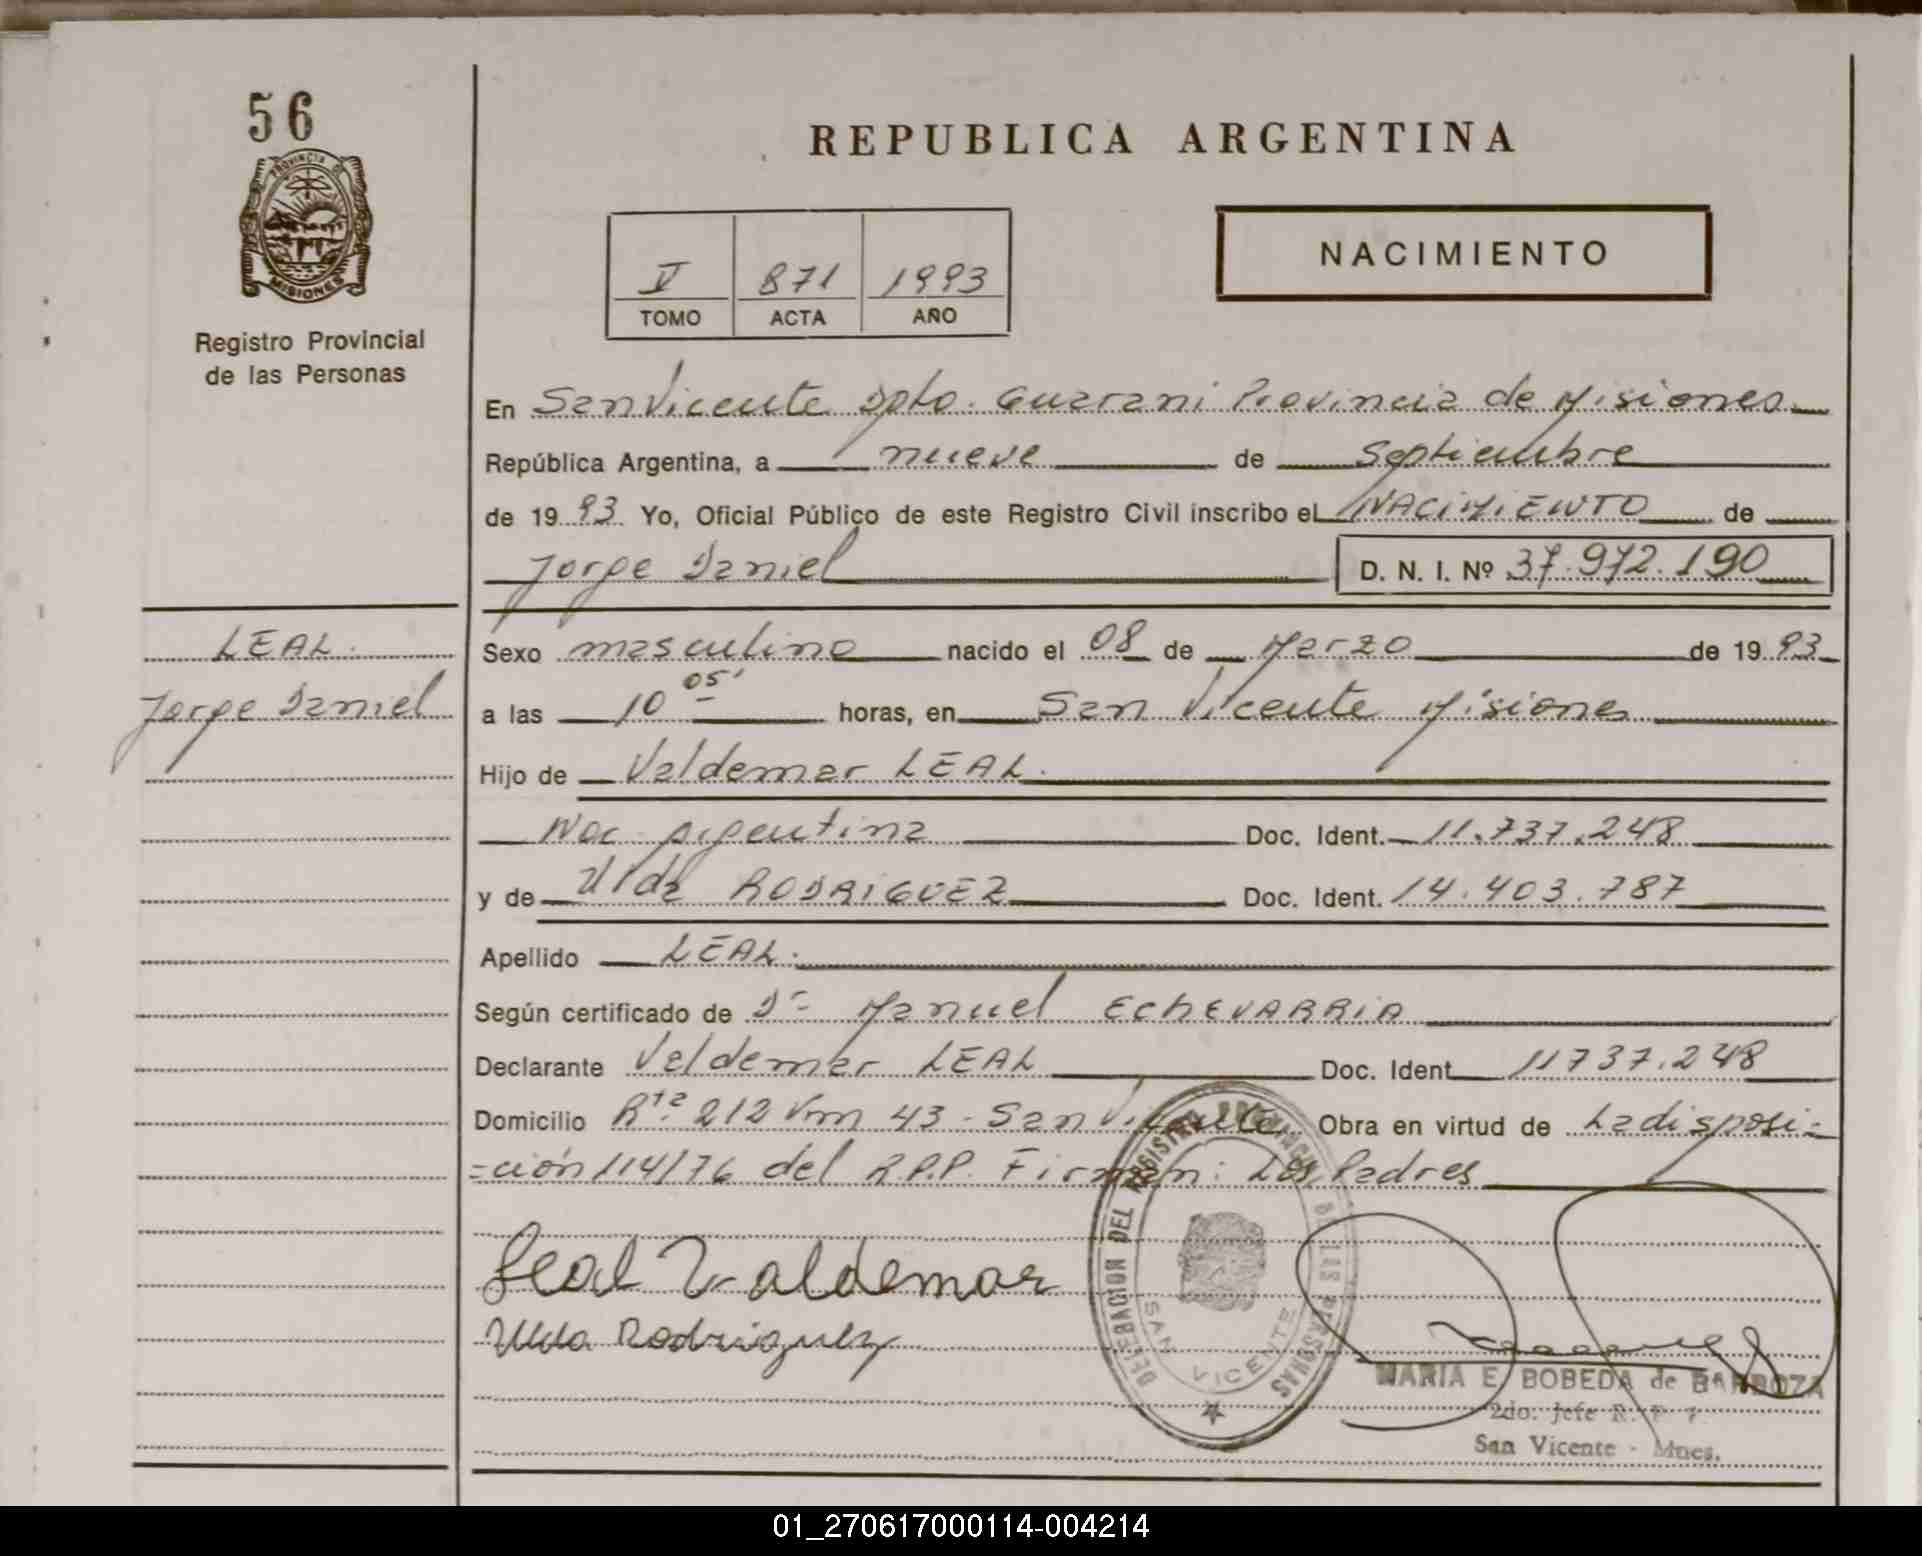 56
PROVINCIA DE
MISIONES
Registro Provincial
de las Personas
REPUBLICA ARGENTINA
NACIMIENTO
V 871 1993
TOMO ACTA AÑO
En San Vicente Dpto. Guarani Provincia de Misiones
República Argentina, a nueve de Septiembre
de 1993 Yo, Oficial Público de este Registro Civil inscribo el NACIMIENTO de
Jorge Daniel D. N. I. Nº 37.972.190
LEAL.
Jorge Daniel
Sexo masculino nacido el 08 de Marzo de 1993
a las 10 05' horas, en San Vicente Misiones
Hijo de Valdemar LEAL.
Nac. argentina Doc. Ident. 11.737.248
y de Ulda RODRIGUEZ Doc. Ident. 14.403.787
Apellido LEAL.
Según certificado de Dr Manuel ECHEVARRIA
Declarante Valdemar LEAL Doc. Ident 11737.248
Domicilio Rta 212 Km 43 - San Vicente Obra en virtud de La disposi=
=ción 114/76 del R.P.P. Firman: Los Padres
Leal Valdemar
Ulda Rodriguez
DELEGACION DEL REGISTRO PROVINCIAL DE LAS PERSONAS
SAN VICENTE
MARIA E. BOBEDA de BARBOZA
2do. Jefe R. P. P.
San Vicente - Mnes.
01_270617000114-004214